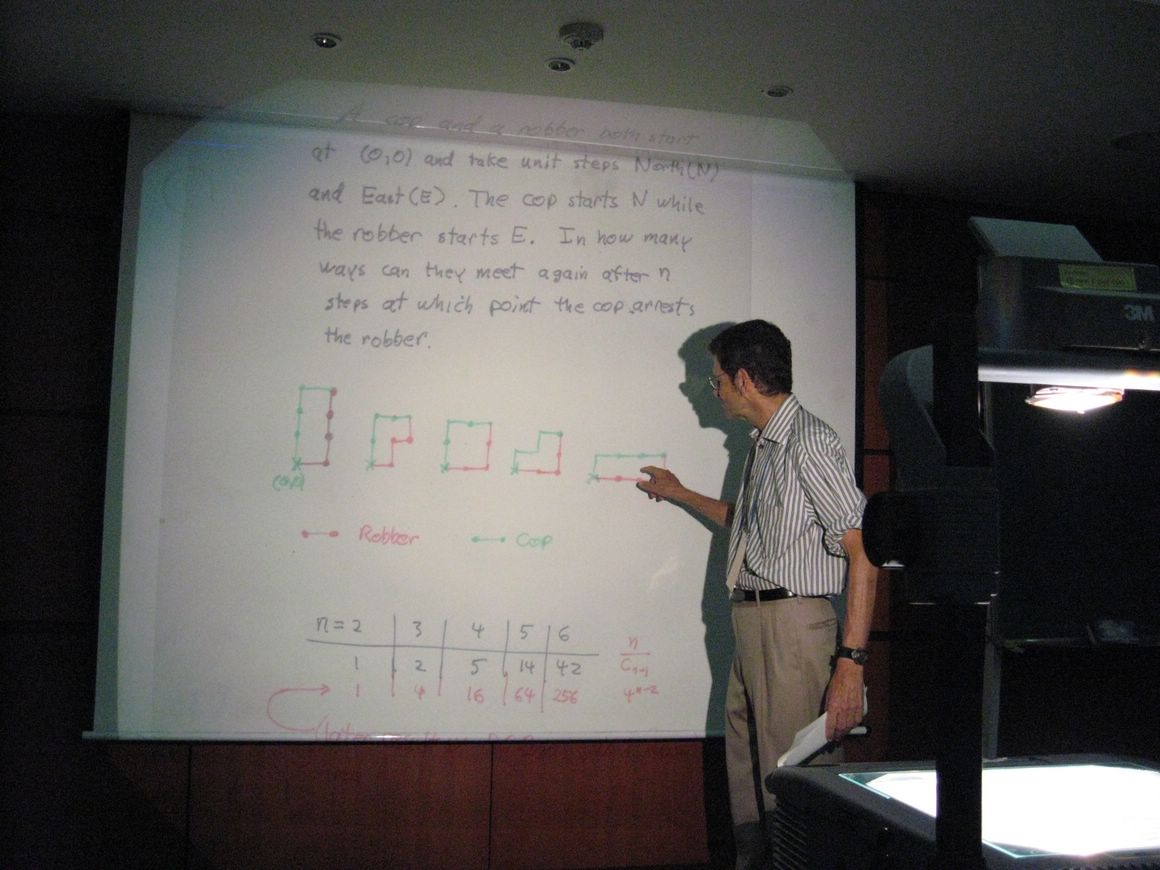 A cop and a robber both start
at (0,0) and take unit steps North(N)
and East(E). The cop starts N while
the robber starts E. In how many
ways can they meet again after n
steps at which point the cop arrests
the robber.
(0,0)
Robber Cop
n=2 3 4 5 6 n
1 2 5 14 42 Cn-1
1 4 16 64 256 4^n-2
3M